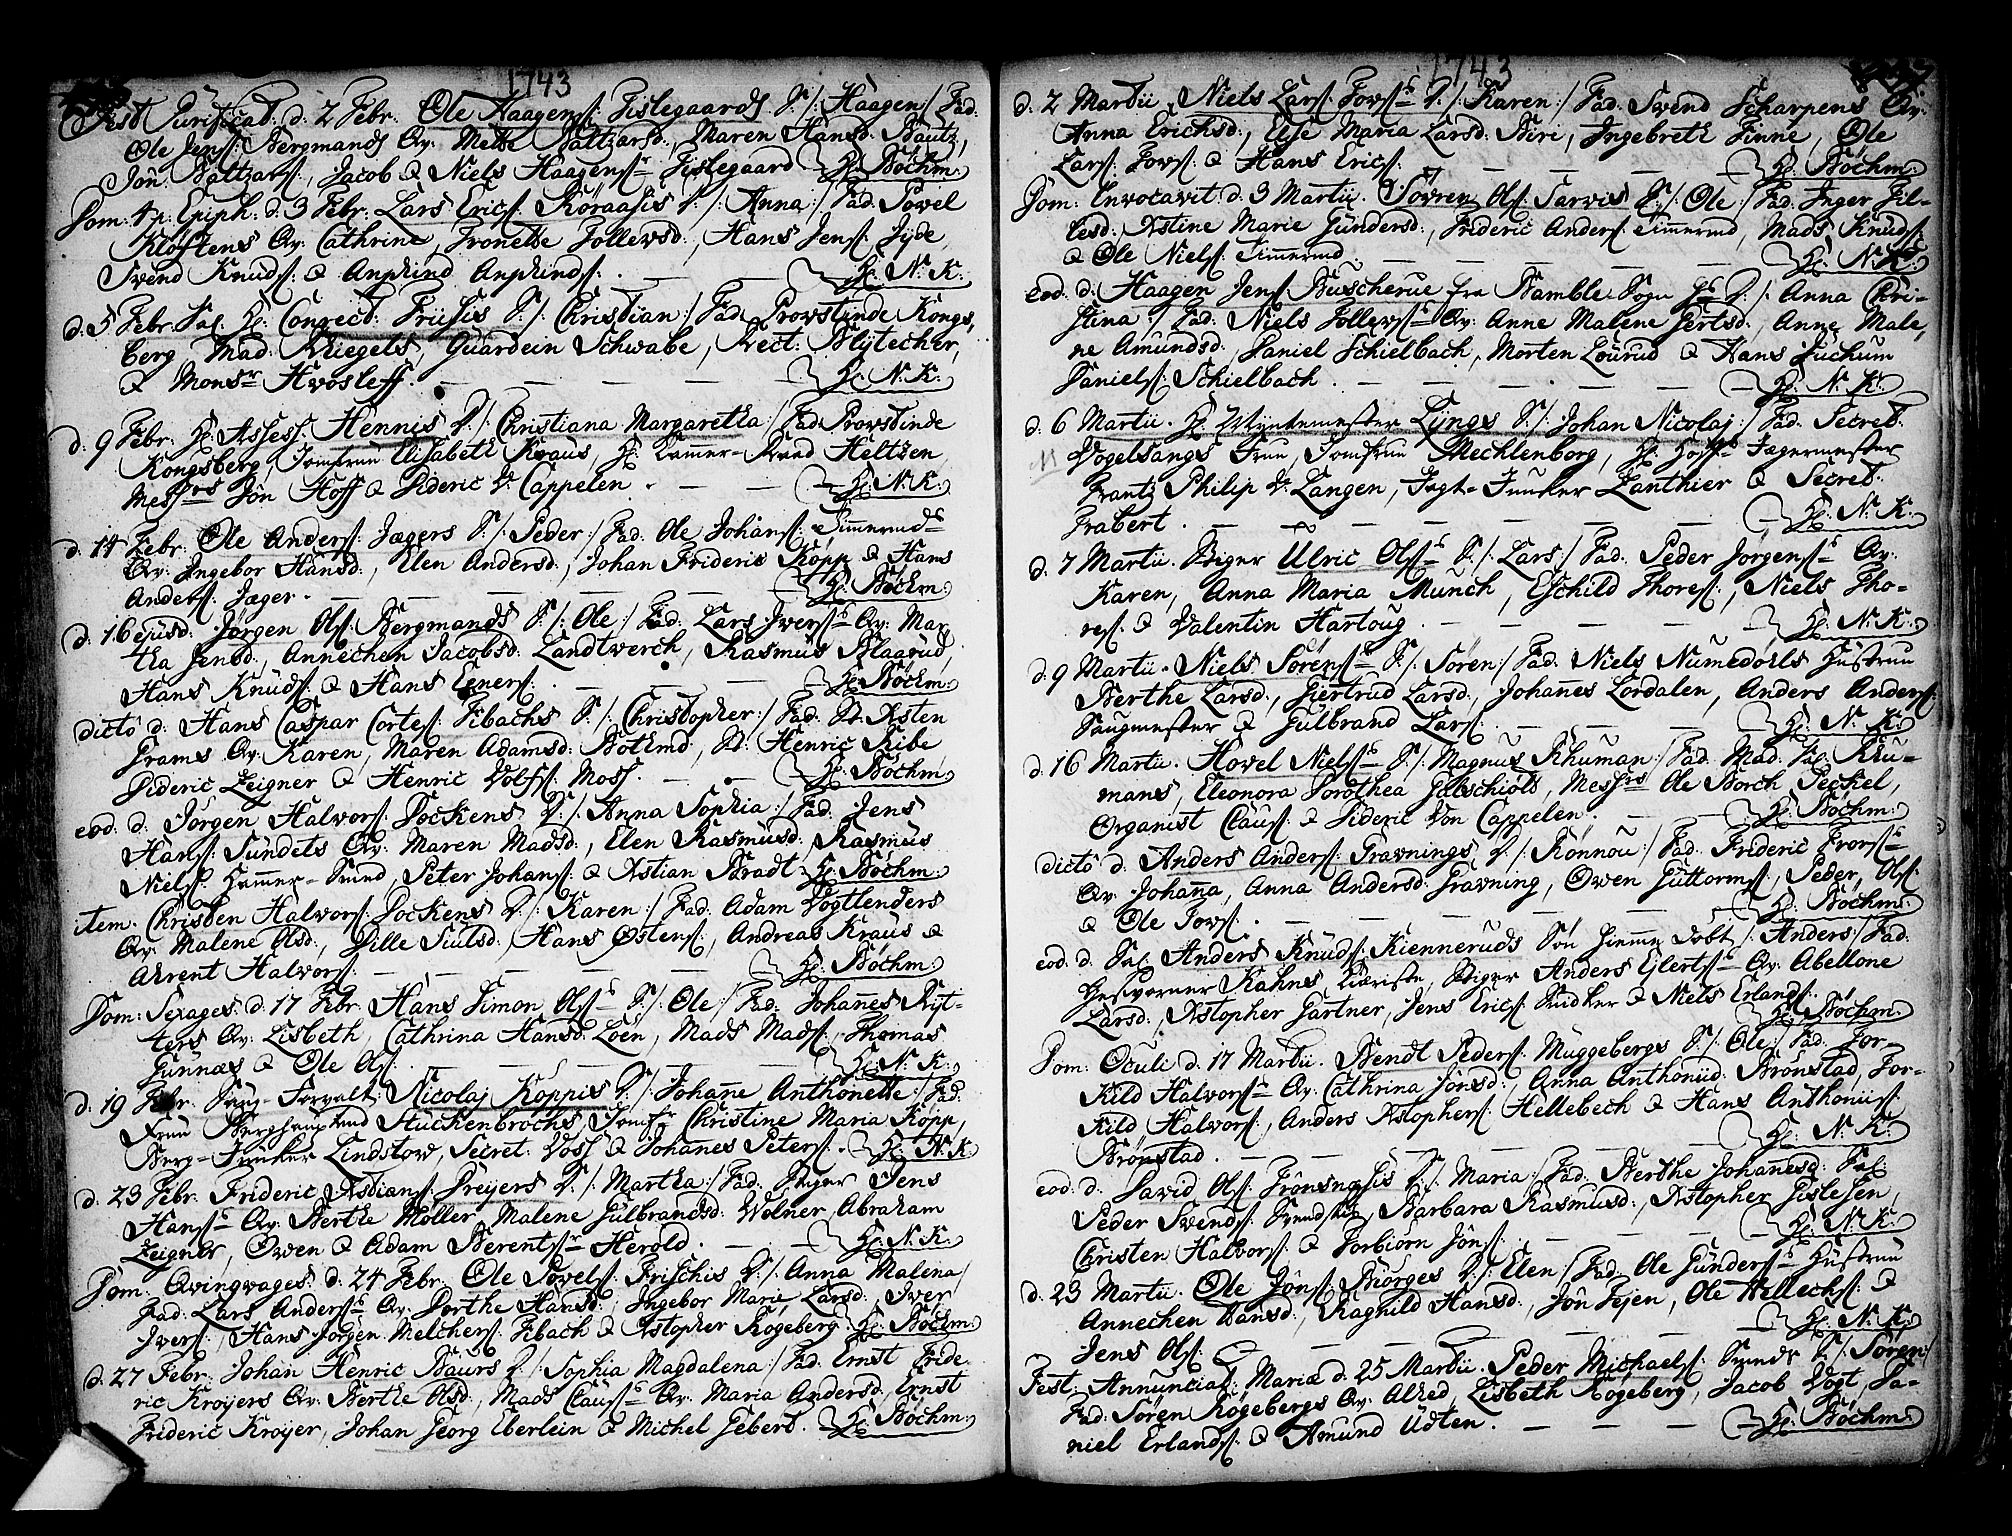 1743
Fest Purificat: d. 2 Febr. Ole Haagens: Gislegaards S./: Haagen/ Fad.
Ole Jens: Bergmands Qv: Mette Baltzarsd:, Maren Hansd: Bautz,
Jon Baltzars:, Jacob & Niels Haagens: Gislegaard — Hr: Böchm:
Dom: 4 p: Epiph: d. 3 Febr: Lars Erics: Koraasis D./: Anna:/ Fad: Povel
Klöftens Qv: Cathrine, Tronette Tollevsd:, Hans Jens: Jyde,
Svend Knuds: & Anphind Anphinds: — Hr: N. K.
d. 5 Febr. Sal. Hr: Conrect: Friisis S./: Christian:/ Fad: Provstinde Kongs,,
berg, Mad: Kriegels, Guardein Schwabe, Rect: Blytecher,
& Monsr Hvosleff. — Hr: N. K.
d. 9 Febr. Hr: Assess. Hennis D./: Christiana Margaretha:/ Fad: Provstinde
Kongsberg, Jomfrue Elisabeth Kraus, Hr: Cammer-Raad Heltzen,
Messrs Jon Hoff & Dideric V: Cappelen. — Hr: N. K.
d. 14 Febr: Ole Anders: Jægers S./: Peder:/ Fad: Ole Johans: Timmermds
Qv: Ingebor Hansd:, Elen Andersd:, Johan Frideric Köpp & Hans
Anders: Jæger. — Hr: Böchm:
d. 16 ejusd: Jörgen Ols: Bergmands S./: Ole:/ Fad: Lars Ivers: Qv: Mar
tha Jensd:, Annechen Jacobsd: Landtverch, Rasmus Blaarud,
Hans Knuds: & Hans Egners: — Hr: Böchm:
dicto d. Hans Caspar Cortes: Fibachs S./: Christopher:/ Fad: Sr. Xsten
Grams Qv: Karen, Maren Adamsd: Botkmd, Sr. Henric Ribe
Dideric Zeigner & Henric Volfs: Moss. — Hr: Böchm:
eod. d. Jörgen Halvors: Dockens D./: Anna Sophia:/ Fad: Jens
Hans: Sundets Qv: Maren Madsd:, Elen Rasmusd:, Rasmus
Niels: Hammer-Smed, Peter Johans: & Xstian Bradt. Hr: Böchm:
item. Christen Halvors: Dockens D./: Karen:/ Fad: Adam Vogtlenders
Qv: Malene Olsd:, Dille Siulsd:, Hans Østens:, Andreas Kraus &
Ahrent Halvors: — Hr: Böchm:
Dom: Sexages: d. 17 Febr. Hans Simon Ols: S./: Ole:/ Fad: Johannes Ryt-
ters Qv: Lisbeth, Cathrina Hansd: Loen, Mads Mads:, Thomas
Gunnæs & Ole Ols: — Hr: N. K.
d. 19 Febr. Saug-Forvalt: Nicolaj Koppis D./: Johanne Anthonette:/ Fad:
Frue Berghauptmd Stuckenbrochs, Jomfr Christine Maria Kopp,
Berg-Juncker Lindstow, Secret: Voss & Johannes Peters: — Hr: N. K.
d. 23 Febr. Frideric Xstians: Preyers D./: Martha:/ Fad: Stiger Jens
Hans: Qv: Berthe Möller, Malene Gulbrandsd: Wolner, Abraham
Zeigner, Owen & Adam Berents: Herold. — Hr: N. K.
Dom: Qvinqvages: d. 24 Febr. Ole Povels: Frischis D./: Anna Malena/
Fad: Lars Anders: Qv: Dorthe Hansd:, Ingebor Marie Larsd:, Iver
Ivers:, Hans Jörgen Melchers: Fibach & Xstopher Rogeberg. Hr: Böchm:
d. 27 Febr. Johan Henric Baurs D./: Sophia Magdalena:/ Fad: Ernst Fride
ric Kroyers Qv: Berthe Olsd:, Mads Claus: Qv: Maria Andersd:, Ernst
Frideric Kroyer, Johan Georg Eberlein & Michel Gebert. Hr: Böchm:
1743
d. 2 Martii. Niels Lars: Fors: D./: Karen:/ Fad: Svend Scharpens Qv:
Anna Erichsd:, Else Maria Larsd: Biri, Ingebreth Finne, Ole
Lars: Fors: & Hans Erics: — Hr: Böchm:
Dom: Invocavit d. 3 Martii. Sövren Ols: Sarvis S./: Ole:/ Fad: Inger Jil-
lesd: Xstine Marie Gundersd:, Frideric Anders: Timmermd, Mads Knuds:
& Ole Niels: Timmermd. — Hr: N. K.
eod. d. Haagen Jens: Buscherue fra Bamble Sogn D./: Anna Chri-
stina:/ Fad: Niels Tollevs: Qv: Anne Malene Gertsd:, Anne Male,,
ne Amundsd:, Daniel Schielbach, Morten Lourud & Hans Juchum
Daniels: Schielbach. — Hr: N. K.
d. 6 Martii. Hr: Myntemester Lyngs S./: Johan Nicolaj:/ Fad: Secret.
Vogelsangs Frue, Jomfrue Mechlenborg, Hr: Hoff- Jægermester
Frantz Philip V: Langen, Jagt-Juncker Lanthier & Secret.
Prabert. — Hr: N. K.
d. 7 Martii. Stiger Ulric Ols: S./: Lars:/ Fad: Peder Jorgens: Qv:
Karen, Anna Maria Munch, Eschild Thores:, Niels Tho-
res: & Valentin Hartoug. — Hr: N. K.
d. 9 Martii. Niels Sörens: S./: Sören:/ Fad: Niels Numedöls Hustrue
Berthe Larsd:, Giertrud Larsd:, Johannes Lordalen, Anders Anders:
Saugmester & Gulbrand Lars: — Hr: N. K.
d. 16 Martii. Hovel Niels: S./: Magnus Khuman:/ Fad: Mad: Sal: Khu-
mans, Eleonora Dorothea Gulschiöld, Messrs Ole Borch Peckel,
Organist Claus: & Dideric Von Cappelen. — Hr: Böchm:
dicto d. Anders Anders: Gravnings D./: Rönnou:/ Fad: Frideric Frors:
Qv: Johanna, Anna Andersd: Gravning, Owen Guttorms:, Peder Ols:
& Ole Jovs: — Hr: Böchm:
eod. d. Sal. Anders Knuds: Kienneruds Sön hjemme döbt/: Anders:/ Fad:
Hestvorner Kahns Kieriste, Stiger Anders Ejlerts: Qv: Abellone
Larsd:, Xstopher Gartner, Jens Erics: Snidker & Niels Erlands: Hr: Böchm:
Dom: Oculi d. 17 Martii. Bendt Peders: Muggebergs S./: Ole:/ Fad: Tor-
Kild Halvors: Qv: Cathrina Jonsd:, Anna Anthoniid: Brönstad, Tor-
Kild Halvors:, Anders Xstophers: Hellebech & Hans Anthoniis:
Brönstad. — Hr: N. K.
eod. d. David Ols: Trönsnæsis D./: Maria:/ Fad: Berthe Johannesd: Sal:
Peder Svends: Svendskes, Barbara Rasmusd:, Xstopher Gislesen,
Christen Halvors: & Torbiorn Jons: — Hr: N. K.
d. 23 Martii. Ole Jöns: Börges D./: Elen:/ Fad: Ole Gunders: Hustrue
Annechen Hansd:, Ragnild Hansd:, Jon Tejen, Ole Hellechs: &
Jens Ols: — Hr: N. K.
Fest: Annunciat: Mariæ d. 25 Martii. Peder Michaels: Sunds S./: Sören:/
Fad: Sören Rogebergs Qv: Alhed, Lisbeth Rogeberg, Jacob Vogt, Da-
niel Erlands: & Amund Udten. — Hr: Böchm: